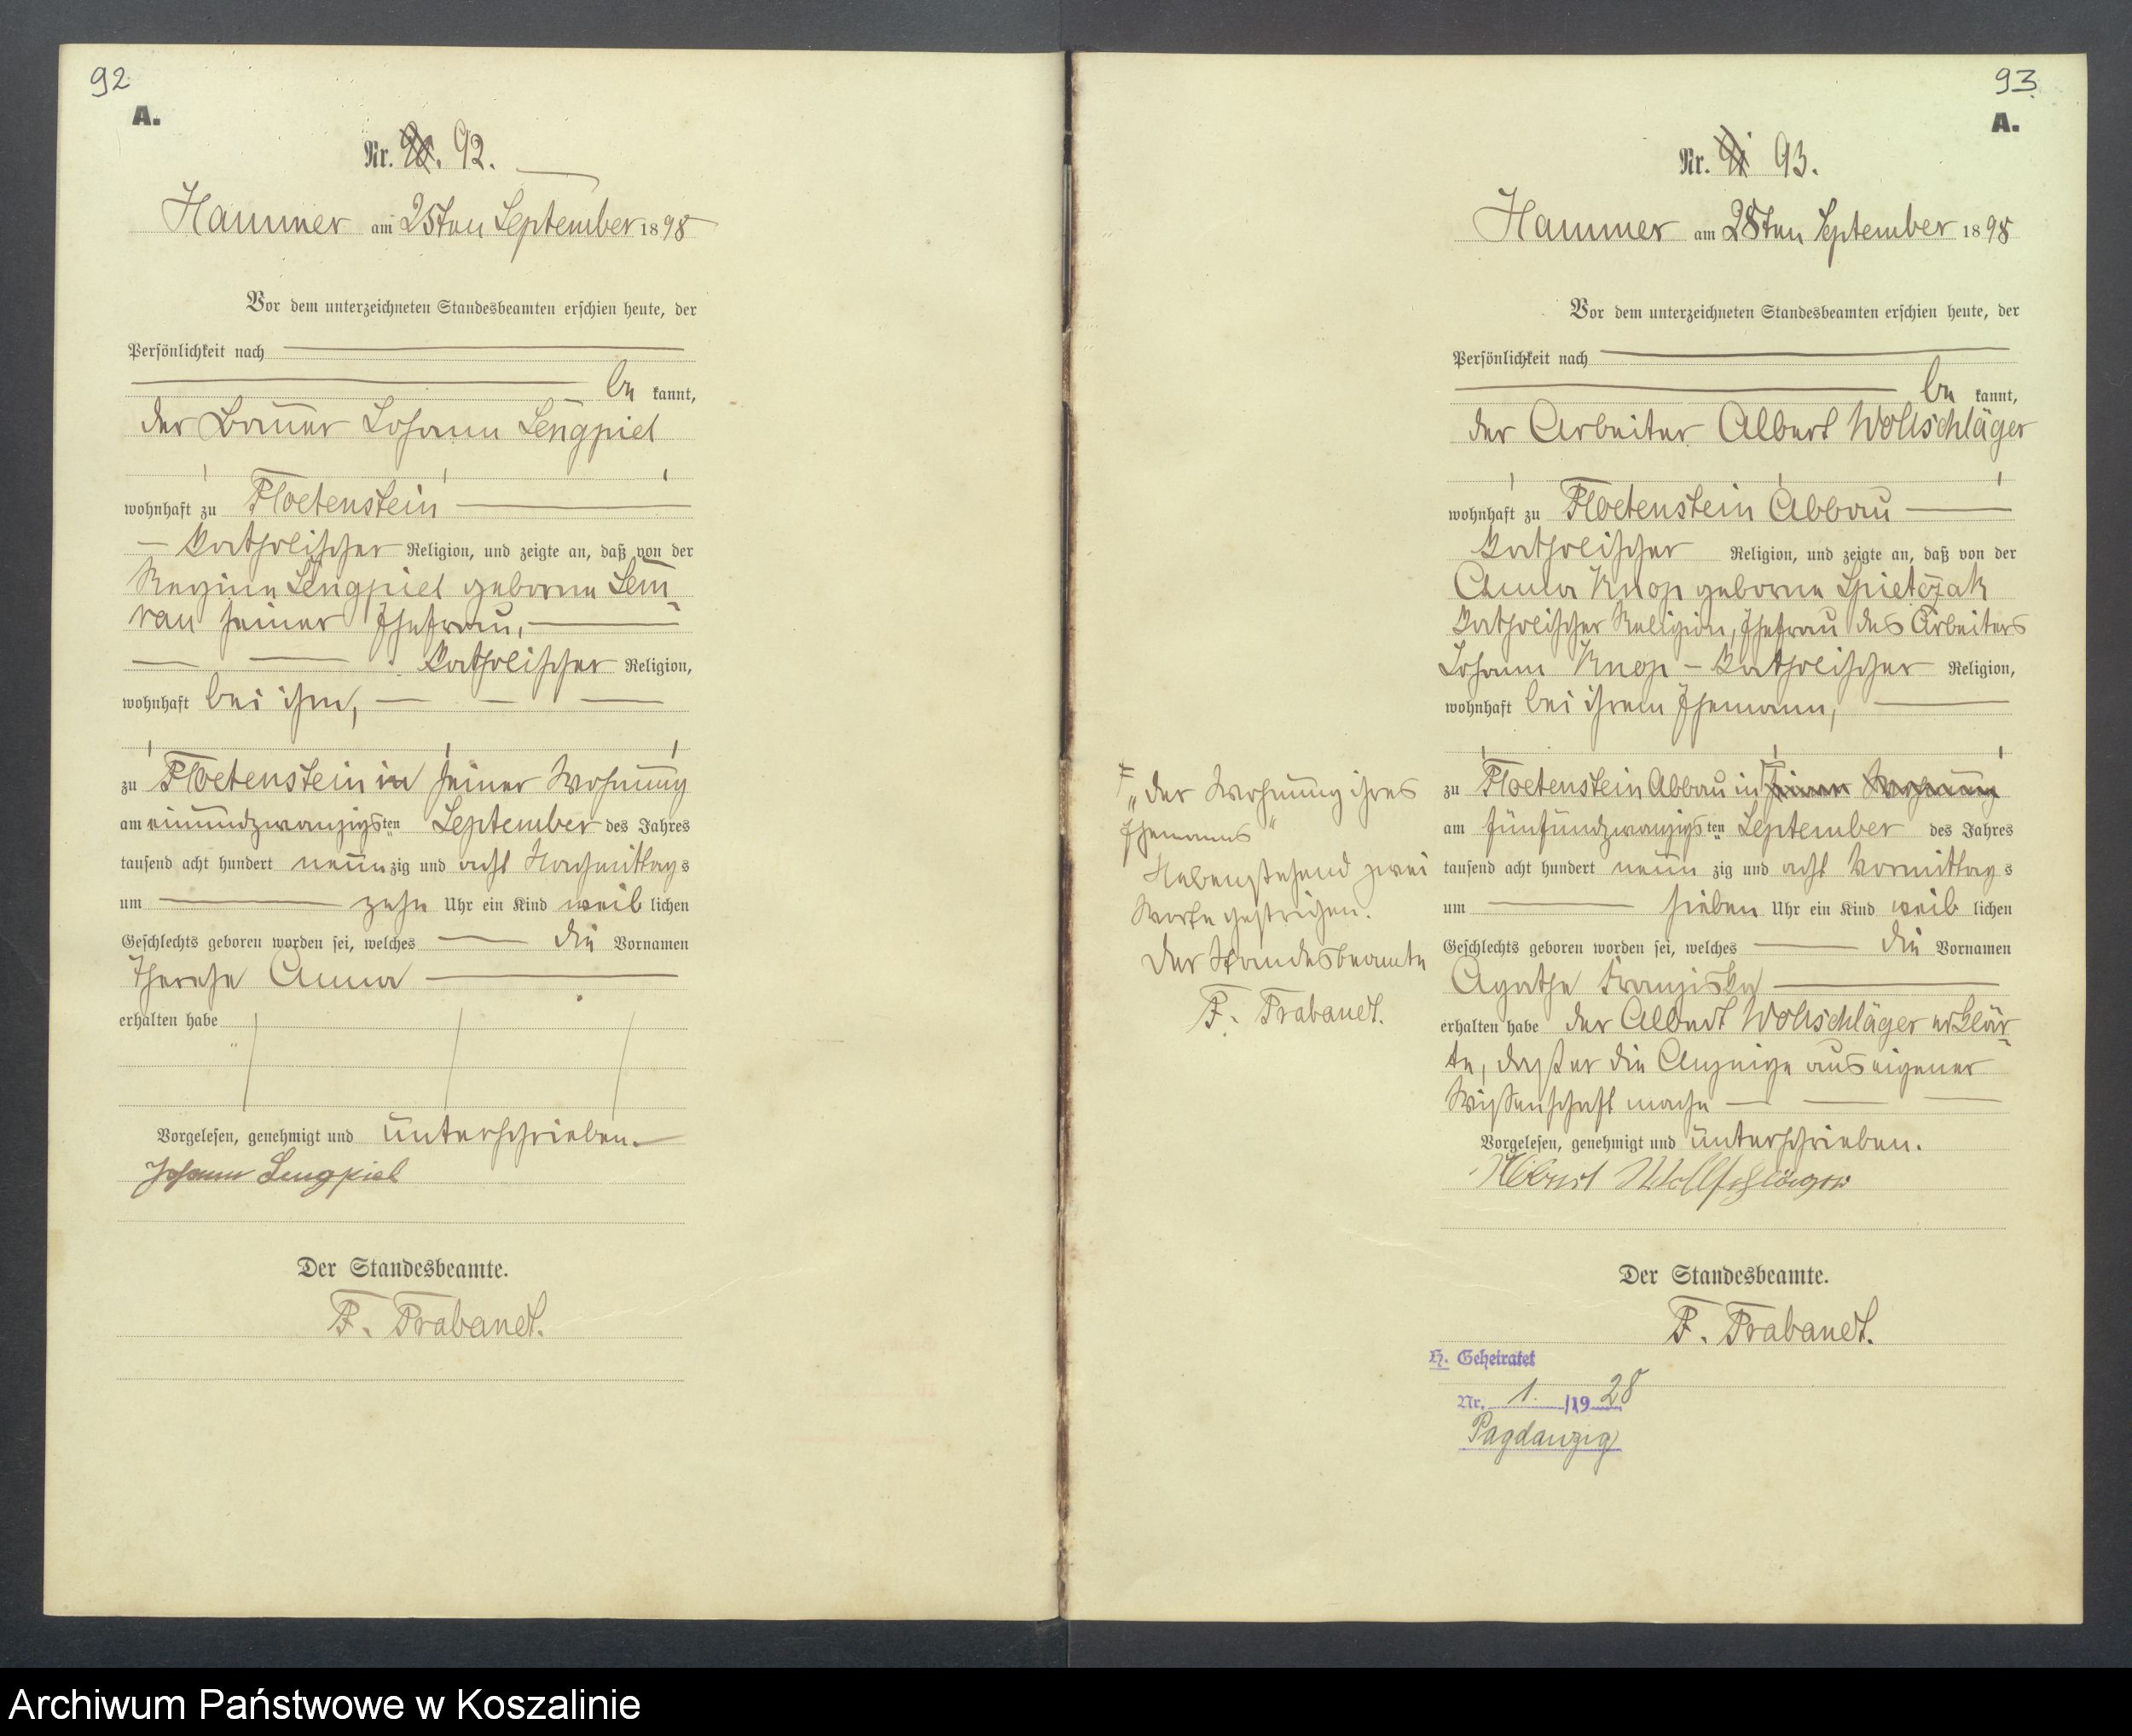 92
A.
Nr. 92.
Hammer am 25ten September 1898
Vor dem unterzeichneten Standesbeamten erschien heute, der
Persönlichkeit nach
be kannt,
der Bauer Johann Lengpiel
wohnhaft zu Floetenstein
katholischer Religion, und zeigte an, daß von der
Regine Lengpiel geborne Sem
rau seiner Ehefrau,
katholischer Religion,
wohnhaft bei ihm,
zu Floetenstein in seiner Wohnung
am einundzwanzigsten September des Jahres
tausend acht hundert neunzig und acht Nachmittags
um zehn Uhr ein Kind weiblichen
Geschlechts geboren worden sei, welches die Vornamen
Therese Anna
erhalten habe
Vorgelesen, genehmigt und unterschrieben.
Johann Lengpiel
Der Standesbeamte.
F. Trabandt.
93
A.
Nr. 93.
Hammer am 28ten September 1898
Vor dem unterzeichneten Standesbeamten erschien heute, der
Persönlichkeit nach
be kannt,
der Arbeiter Albert Wollschläger
wohnhaft zu Floetenstein Abbau
katholischer Religion, und zeigte an, daß von der
Anna Knop geborne Spietczak
katholischer Religion, Ehefrau des Arbeiters
Johann Knop - katholischer Religion,
wohnhaft bei ihrem Ehemann,
zu Floetenstein Abbau in seiner Wohnung
am fünfundzwanzigsten September des Jahres
tausend acht hundert neun zig und acht Vormittags
um sieben Uhr ein Kind weib lichen
Geschlechts geboren worden sei, welches die Vornamen
Agathe Franziska
erhalten habe der Albert Wollschläger erklär
te, daß er die Anzeige aus eigener
Wissenschaft mache
Vorgelesen, genehmigt und unterschrieben.
Albert Wollschläger
Der Standesbeamte.
F. Trabandt.
"der Wohnung ihres
Ehemanns"
Nebenstehend zwei
Worte gestrichen.
Der Standesbeamte
F. Trabandt.
H. Geheiratet
Nr. 1. /1928
Pagdanzig
Archiwum Państwowe w Koszalinie